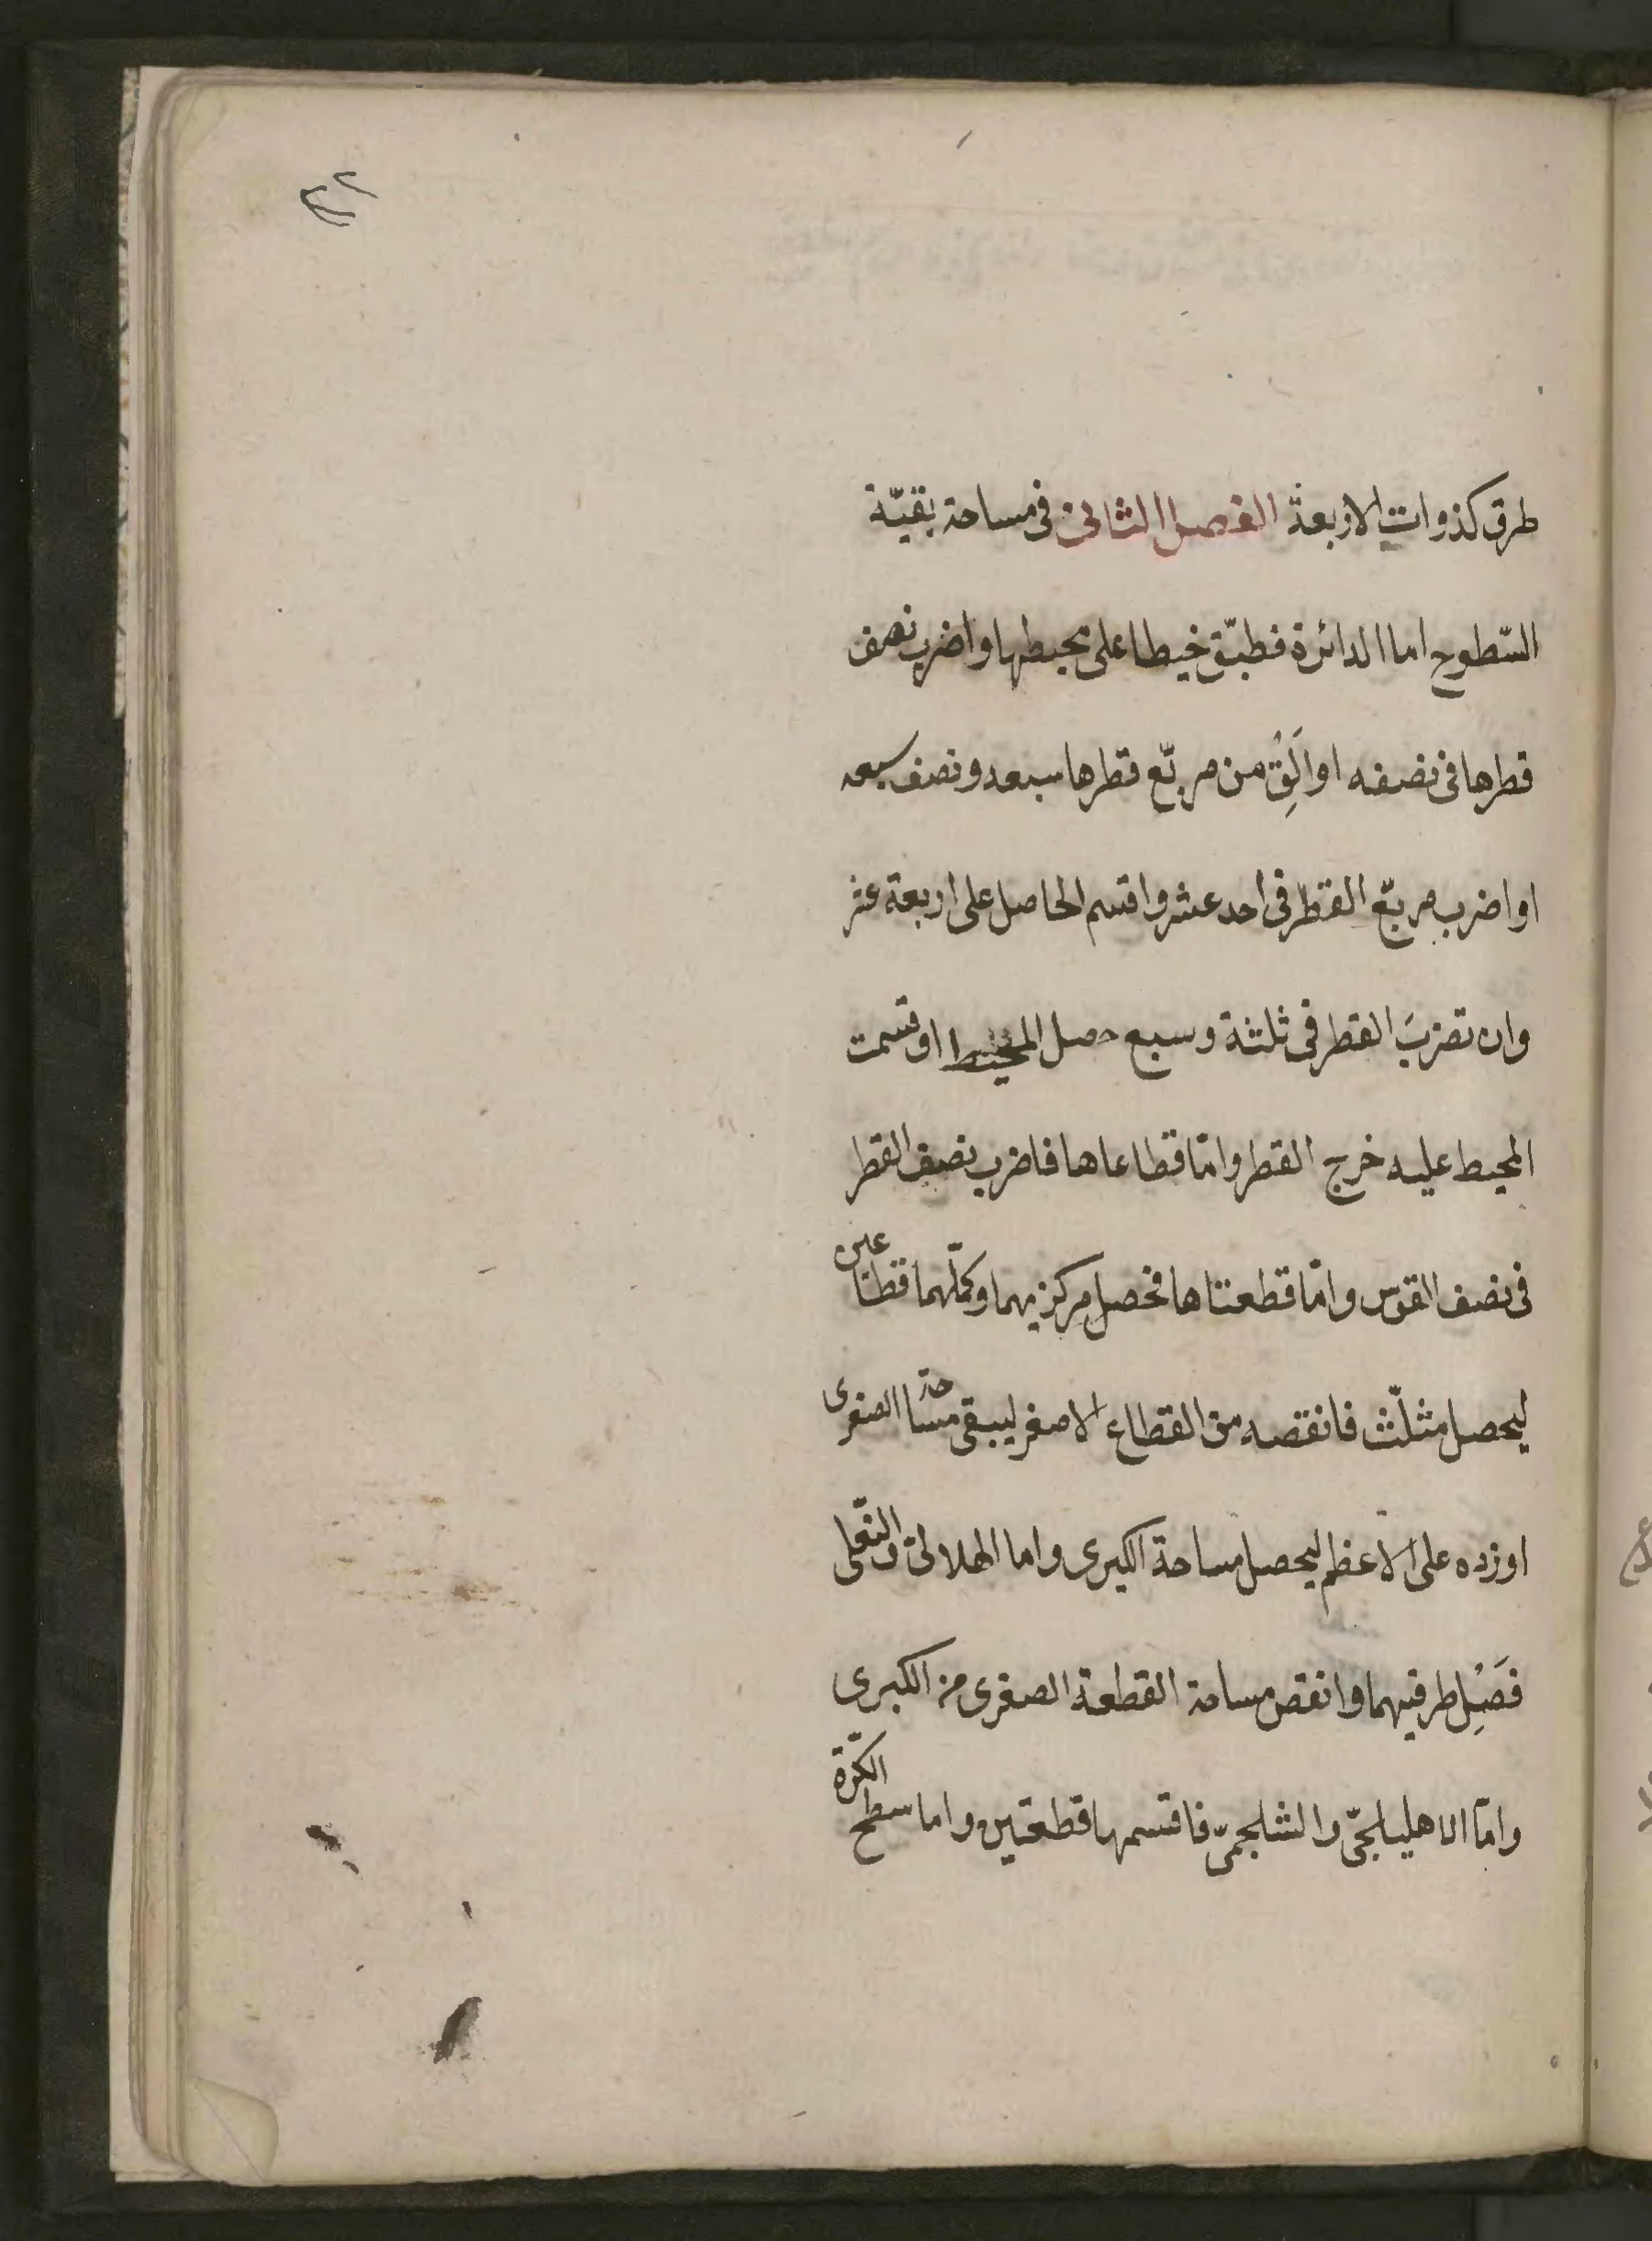 ٢٢
طرق كذوات الاربعة الفصل الثانى فى مساحة بقيّة
السّطوح اما الدائرة فطبّق خيطا على محيطها واضرب نصف
قطرها فى نصفه او الَقِ من مربّع قطرها سبعه ونصف سبعه
او اضرب مربّع القطر فى احد عشر واقسم الحاصل على اربعة عشر
وان تضربَ القطر فى ثلثة وسبع حصل المحيط او قسمت
المحيط عليه خرج القطر وامّا قطاعاها فاضرب نصف القطر
فى نصف القوس وامّا قطعتاها فحصل مركزيهما وكمّلهما قطاعين
ليحصل مثلّث فانقصه من القطاع الاصغر ليبقى مساحة الصغرى
او زده على الاعظم ليحصل مساحة الكبرى واما الهلالىّ والنّعلى
فَصِل طرفيهما وانقص مساحة القطعة الصغرى من الكبرى
وامّا الاهليلجىّ والشلجمىّ فاقسمها قطعتين واما سطح الكرة